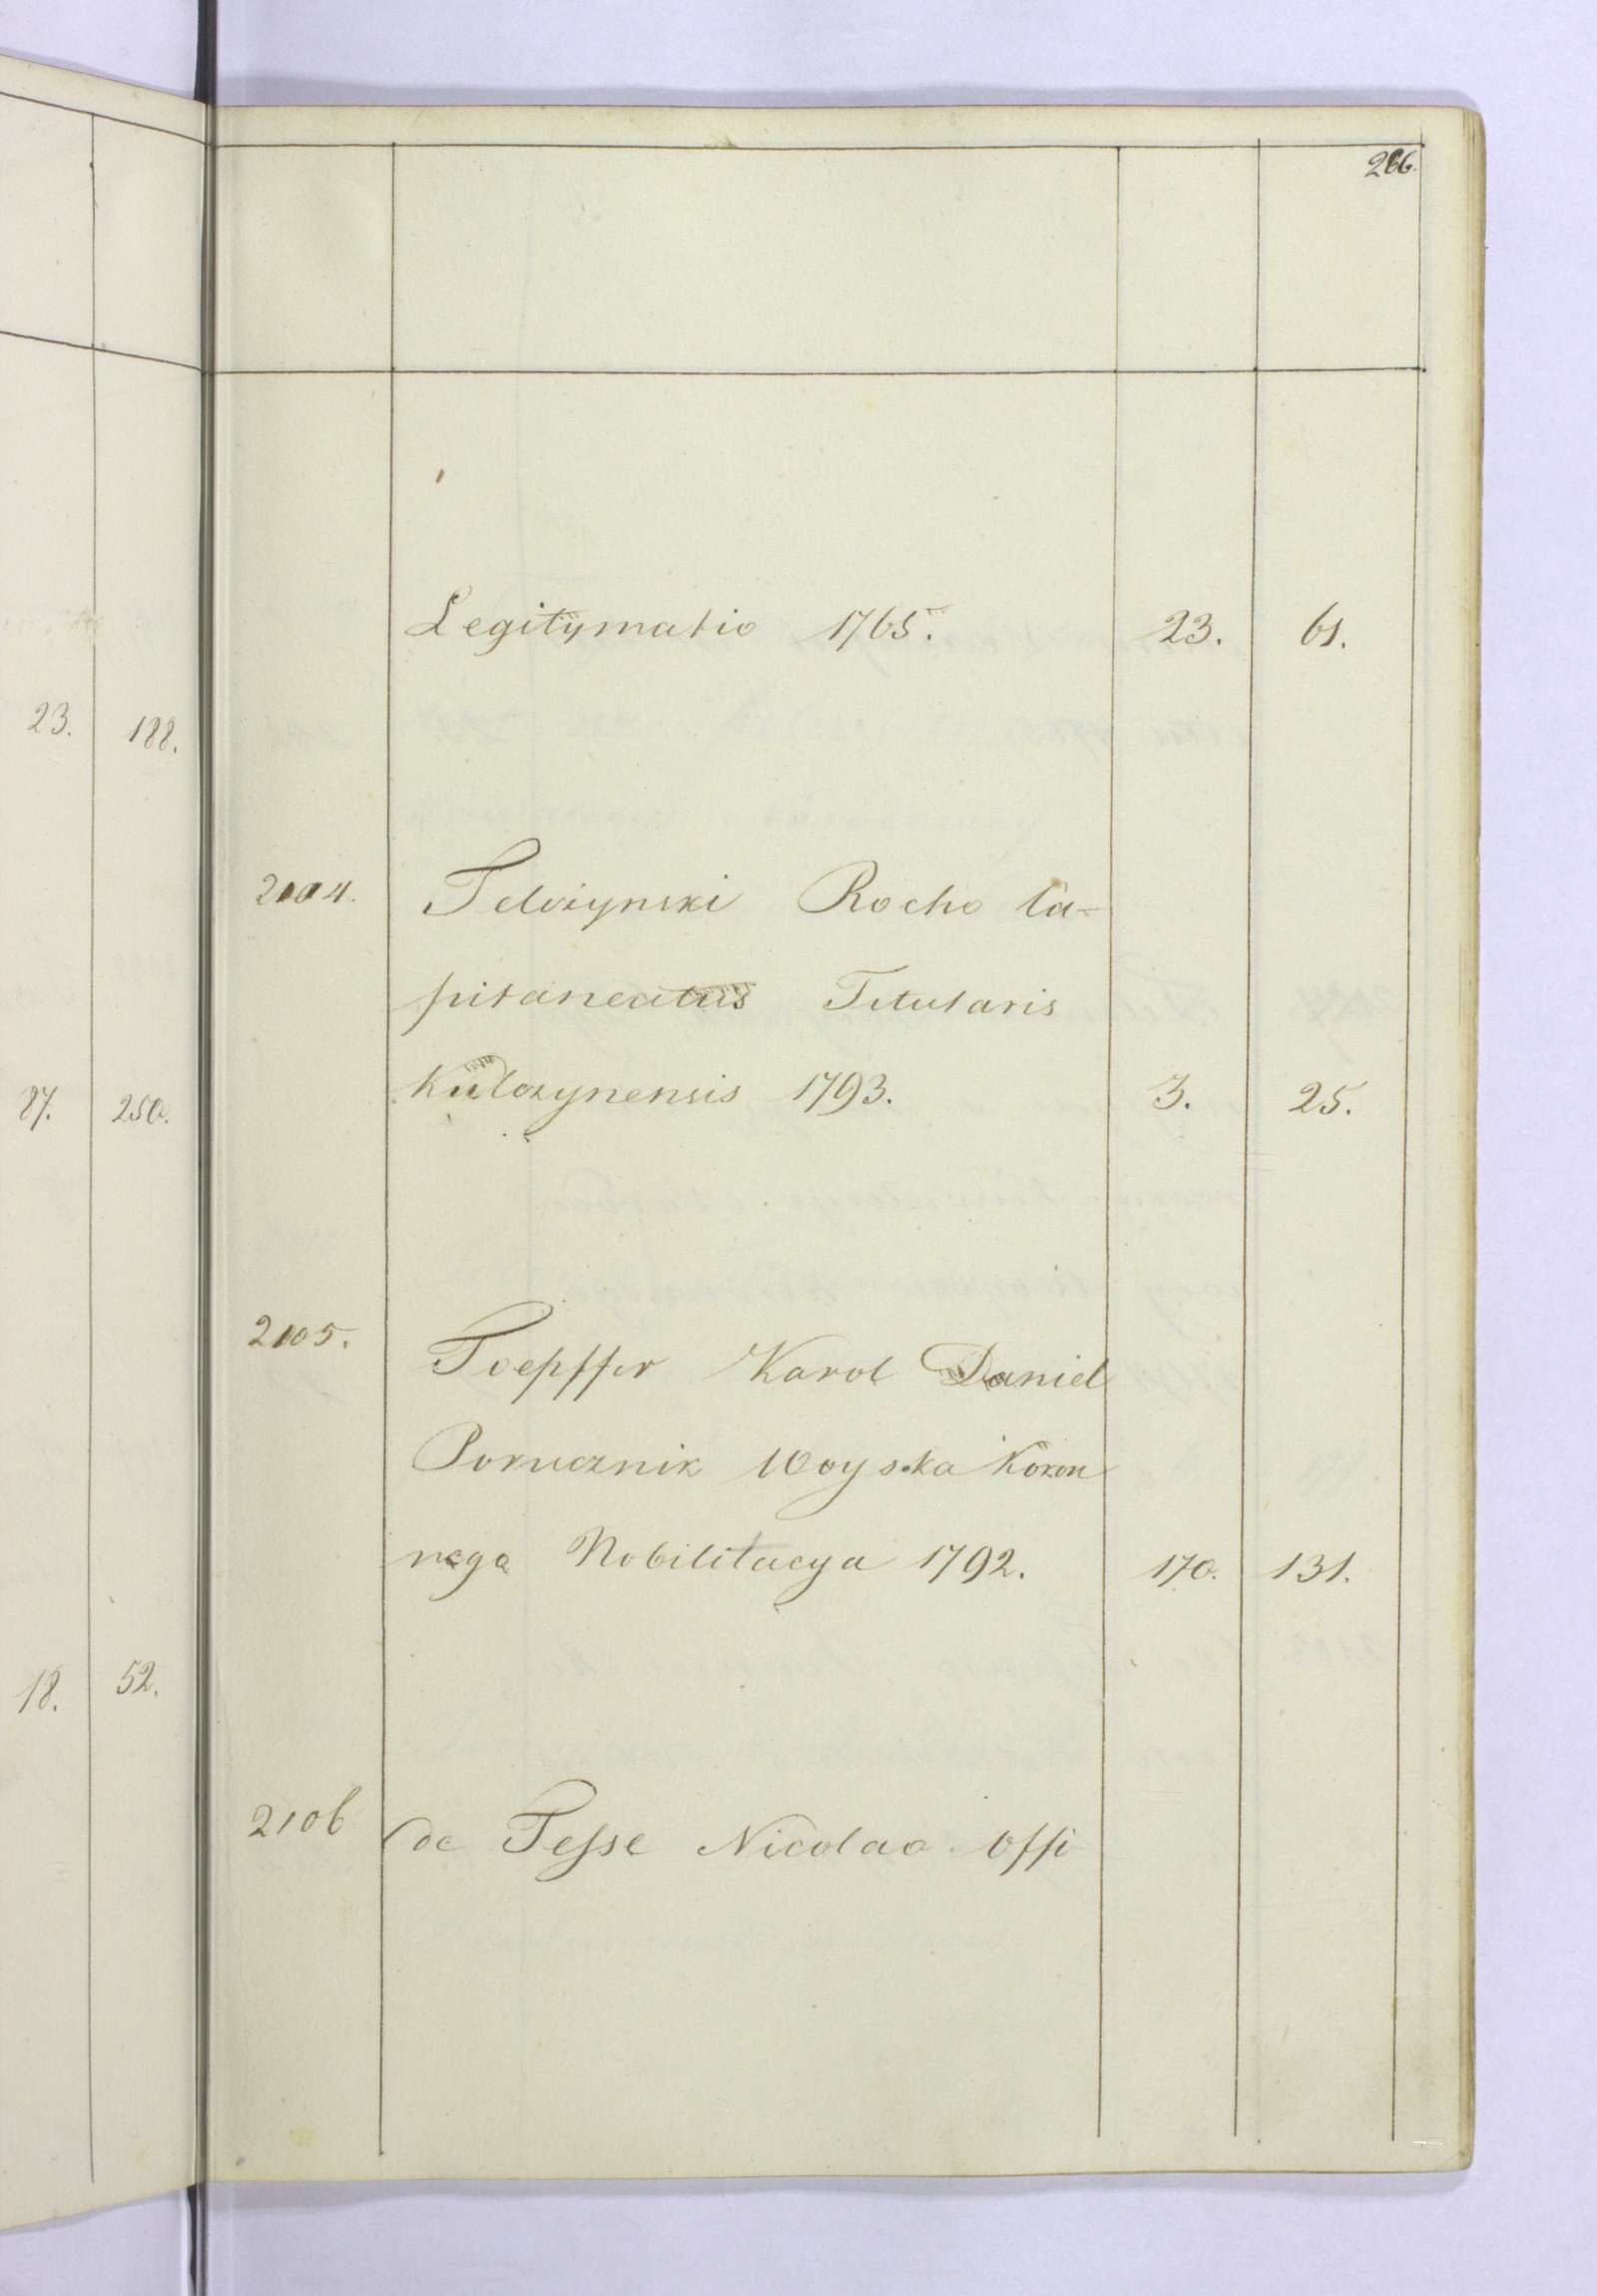 266.
Legitymatio 1765. 23. 61.
23. 188.
2104. Telezynski Rocho Ca-
pitaneatus Titularis
Kulczynensis 1793. 3. 25.
87. 250.
2105. Toepffer Karol Daniel
Porucznik Woyska Koron
nego Nobilitacya 1792. 170. 131.
18. 52.
2106 de Tesse Nicolao Offi